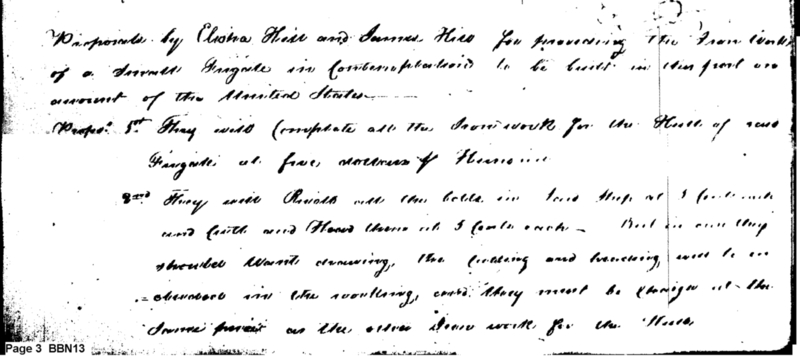 Proposals by Elisha Hill and James Hill for providing the Iron Work
of a Small Frigate in Contemplation to be built in this port on
account of the United States
Propos. 1st. They will Complete all the Iron work for the Hull of said
Frigate at five
2nd They will all the bolts in said Ship at 5 Cents each
and Cutt and Head them at 5 Cents each – But in case they
should Want drawing, the Cutting and heading, will be in
in the working, and they must be at the
Same price as the other Iron work for the Hull
Page 3 BBN13